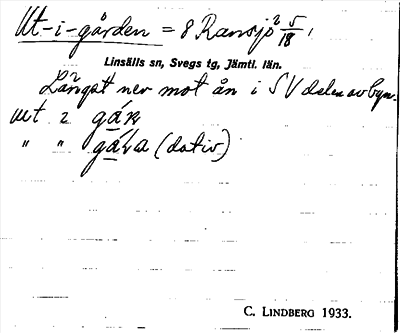 Ut-i-gården = 8 Ransjö 2 5/18
Linsälls sn, Svegs tg, Jämtl. län.
Längst ner mot ån i SV delen av byn.
ut i
" " (dativ)
C. LINDBERG 1933.